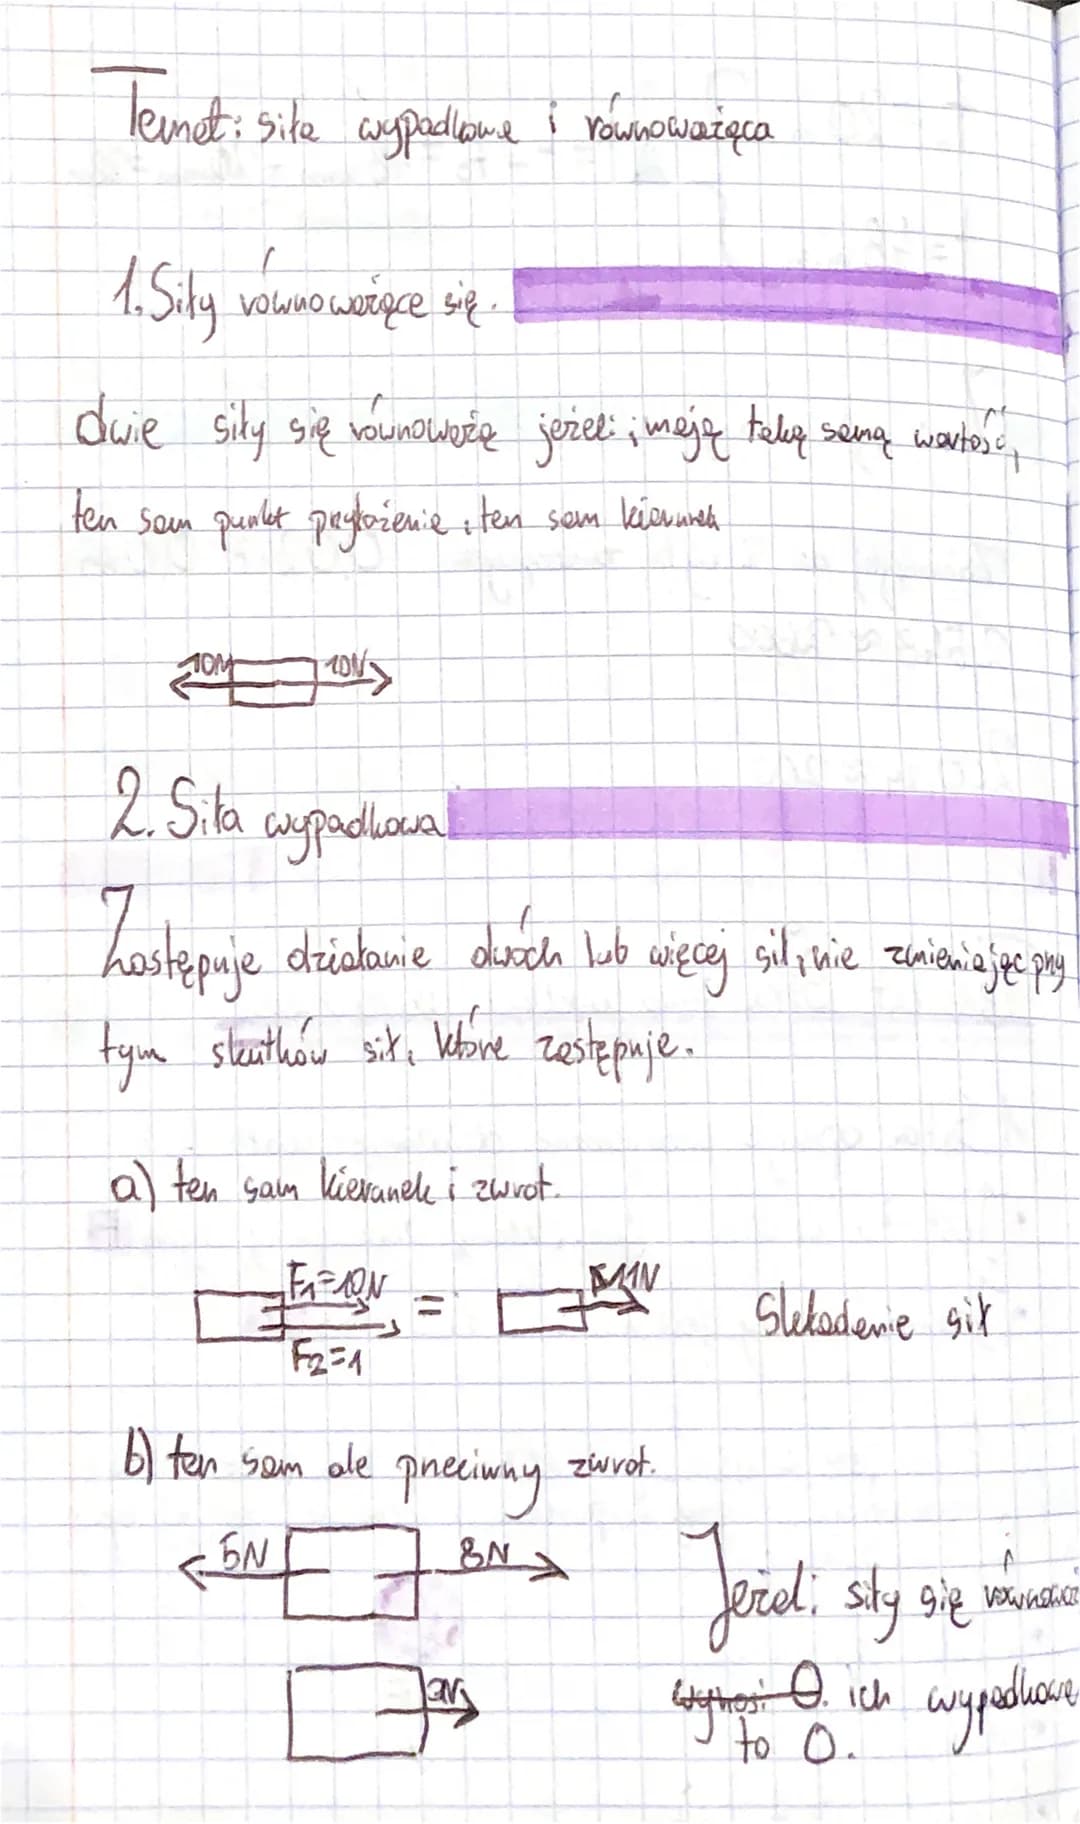 Temat: siła wypadkowa i równoważąca
1. Siły równoważące się.
dwie siły się równoważą jeżeli; mają taką samą wartość,
ten sam punkt przyłożenia, ten sam kierunek
10N 10N
2. Siła wypadkowa
Zastępuje działanie dwóch lub więcej sił, nie zmieniając przy
tym skutków sił, które zastępuje.
a) ten sam kierunek i zwrot.
F₁=10N = 11N Składanie sił
F₂=1
b) ten sam ale przeciwny zwrot.
5N 8N
Jeżeli siły się
3N
wynosi 0. ich wypadkowa
to 0.